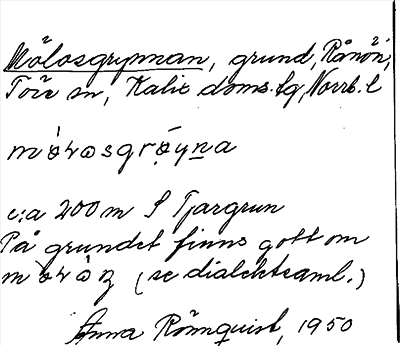 Målosgrynnan, grund, Rånön,
Töre sn, Kalix doms.lg, Norrb. l
c:a 200 m S Tjargrun
På grundet finns gott om
(se dialektsaml.)
Anna Rönnquist, 1950